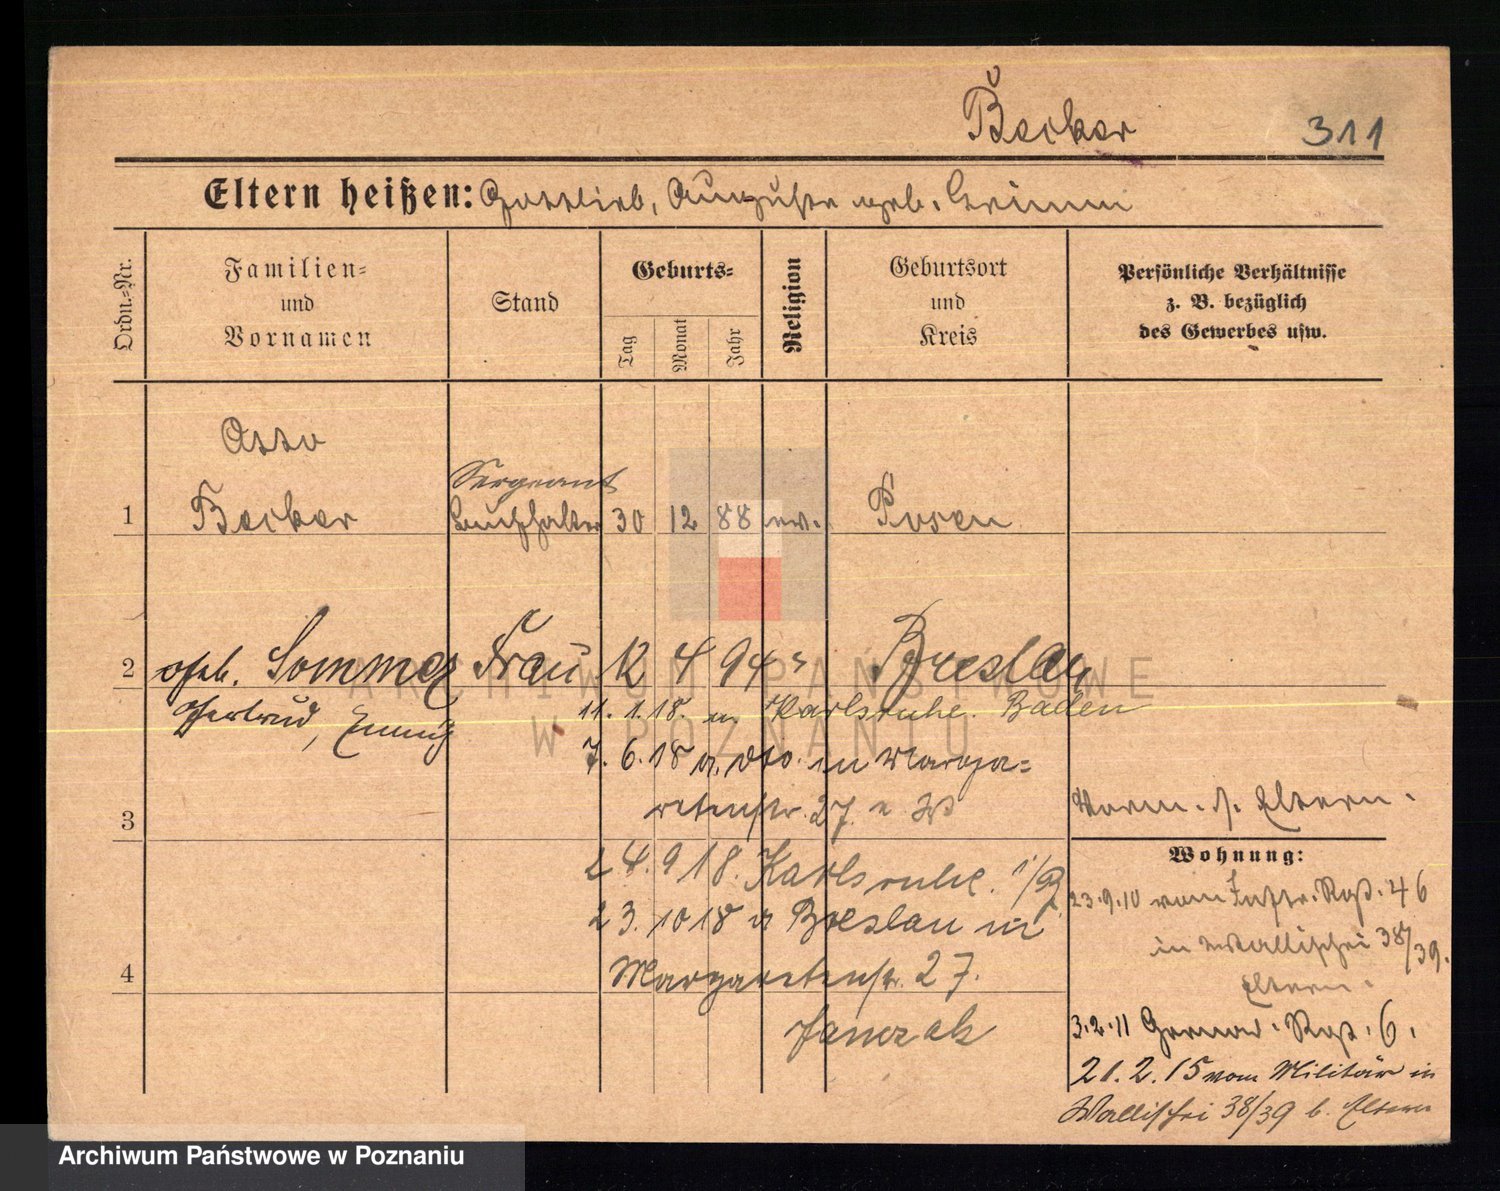 Becker 311
Eltern heißen: Gottlieb, Auguste geb. Grimm
Ordn.-Nr.
Familien-
und
Vornamen
Stand
Geburts-
Tag
Monat
Jahr
Religion
Geburtsort
und
Kreis
Persönliche Verhältnisse
z. B. bezüglich
des Gewerbes usw.
Otto
Sergeant
1 Becker Buchhalter 30 12 88 ev. Posen
2 geb. Sommer Frau 12 4 94 " Breslau
Gertrud, Emmy 11. 1. 18. n. Karlsruhe. Baden
7. 6. 18 v. dto. in Marga-
retenstr. 27
3
Vorm. s. Eltern.
Wohnung:
24. 9 18. Karlsruhe. i/B
23. 10 18 v Breslau in
4 Margaretenstr. 27.
Janczak
23.9.10 vom Inftr. Rgt. 46
in Wallischei 38/39.
Eltern.
3.2.11 Grenad. Rgt. 6.
21.2.15 vom Militär in
Wallischei 38/39 b. Eltern
ARCHIWUM PAŃSTWOWE
W POZNANIU
Archiwum Państwowe w Poznaniu